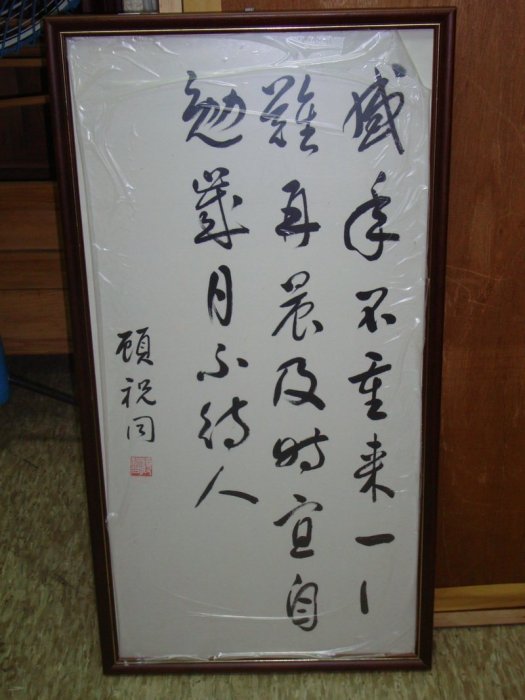 盛年不重来一日
難再晨及時宜自
勉歲月不待人
顧祝同